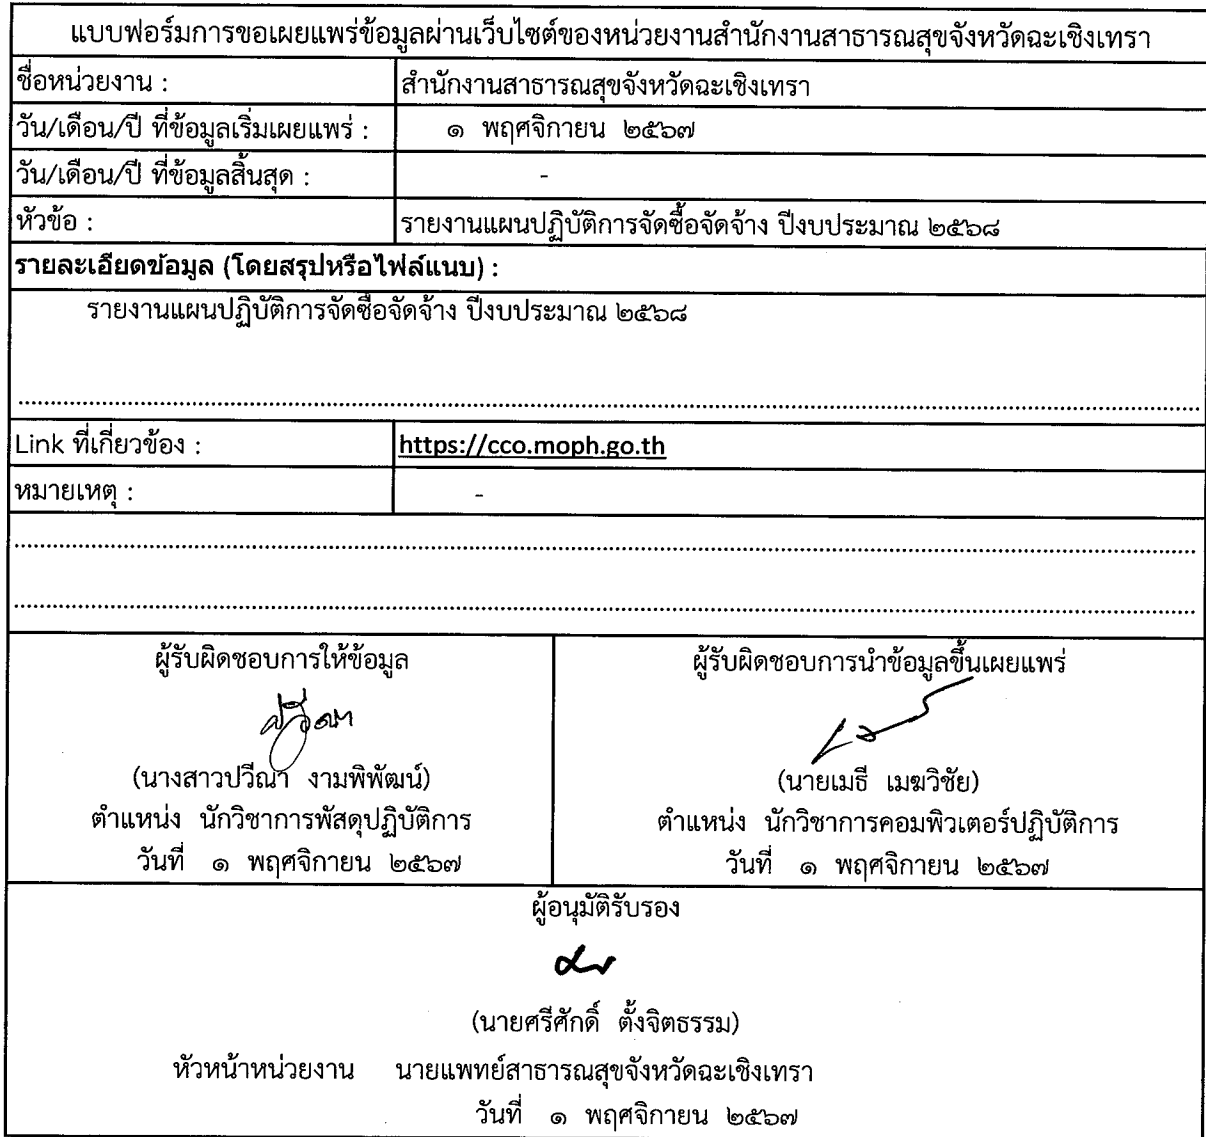 แบบฟอร์มการขอเผยแพร่ข้อมูลผ่านเว็บไซต์ของหน่วยงานสำนักงานสาธารณสุขจังหวัดฉะเชิงเทรา
ชื่อหน่วยงาน : สำนักงานสาธารณสุขจังหวัดฉะเชิงเทรา
วัน/เดือน/ปี ที่ข้อมูลเริ่มเผยแพร่ : ๑ พฤศจิกายน ๒๕๖๗
วัน/เดือน/ปี ที่ข้อมูลสิ้นสุด : -
หัวข้อ : รายงานแผนปฏิบัติการจัดซื้อจัดจ้าง ปีงบประมาณ ๒๕๖๘
รายละเอียดข้อมูล (โดยสรุปหรือไฟล์แนบ) :
รายงานแผนปฏิบัติการจัดซื้อจัดจ้าง ปีงบประมาณ ๒๕๖๘
Link ที่เกี่ยวข้อง : https://cco.moph.go.th
หมายเหตุ : -
ผู้รับผิดชอบการให้ข้อมูล
ปวีณา
(นางสาวปวีณา งามพิพัฒน์)
ตำแหน่ง นักวิชาการพัสดุปฏิบัติการ
วันที่ ๑ พฤศจิกายน ๒๕๖๗
ผู้รับผิดชอบการนำข้อมูลขึ้นเผยแพร่
(นายเมธี เมฆวิชัย)
ตำแหน่ง นักวิชาการคอมพิวเตอร์ปฏิบัติการ
วันที่ ๑ พฤศจิกายน ๒๕๖๗
ผู้อนุมัติรับรอง
(นายศรีศักดิ์ ตั้งจิตธรรม)
หัวหน้าหน่วยงาน นายแพทย์สาธารณสุขจังหวัดฉะเชิงเทรา
วันที่ ๑ พฤศจิกายน ๒๕๖๗